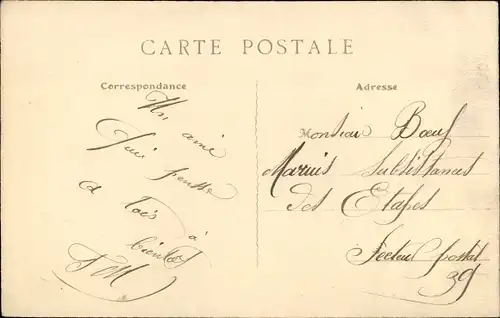 CARTE POSTALE
Correspondance
Un ami
qui pense
a toi
à
bientôt
Adresse
Monsieur Bœuf
Marius Subsistances
des Etapes
Secteur postal
39